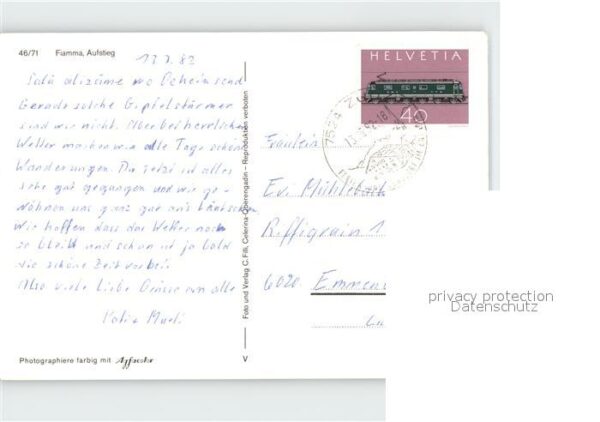 46/71 Fiamma, Aufstieg
HELVETIA
40
7524 ZUOZ
12.7.82
Salü alizäme wo Deheim send
Gerade solche Gipfelstürmer
sind wir nicht. Aber bei herrlichem
Wetter machen wir alle Tage schöne
Wanderungen. Da jetzt ist alles
sehr gut gegangen und wir ge-
wöhnen uns ganz gut ans
Wir hoffen dass das Wetter noch
so bleibt und schon ist ja bald
die schöne Zeit vorbei.
Also viele Liebe Grüsse an alle
Fräulein
Evi
Riffigrain 1
6020 Emmen
Lu
Foto und Verlag C. Filli, Celerina-Oberengadin – Reproduktion verboten
Photographiere farbig mit Agfacolor
V
privacy protection
Datenschutz